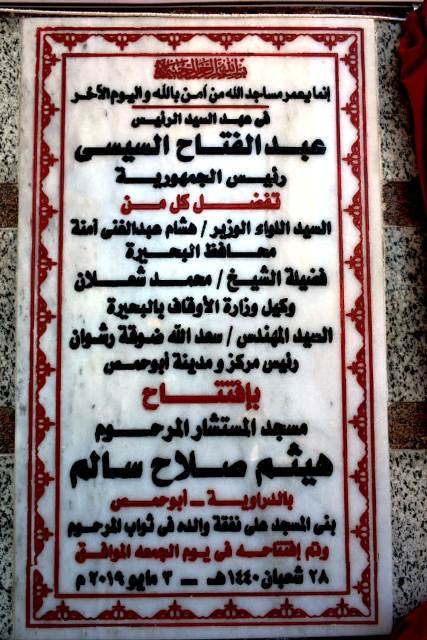 بسم الله الرحمن الرحيم
إنما يعمر مساجد الله من آمن بالله واليوم الآخر
فى عهد السيد الرئيس
عبد الفتاح السيسى
رئيس الجمهورية
تفضل كل من
السيد اللواء الوزير / هشام عبدالغنى آمنة
محافظ البحيرة
فضيلة الشيخ / محمد شعلان
وكيل وزارة الأوقاف بالبحيرة
السيد المهندس / سعد الله ضوقة رشوان
رئيس مركز و مدينة أبوحمص
بإفتتاح
مسجد المستشار المرحوم
هيثم صلاح سالم
بالدراوية - أبوحمص
بنى المسجد على نفقة والده فى ثواب المرحوم
وتم إفتتاحه فى يوم الجمعه الموافق
٢٨ شعبان ١٤٤٠هـ - ٣ مايو ٢٠١٩م